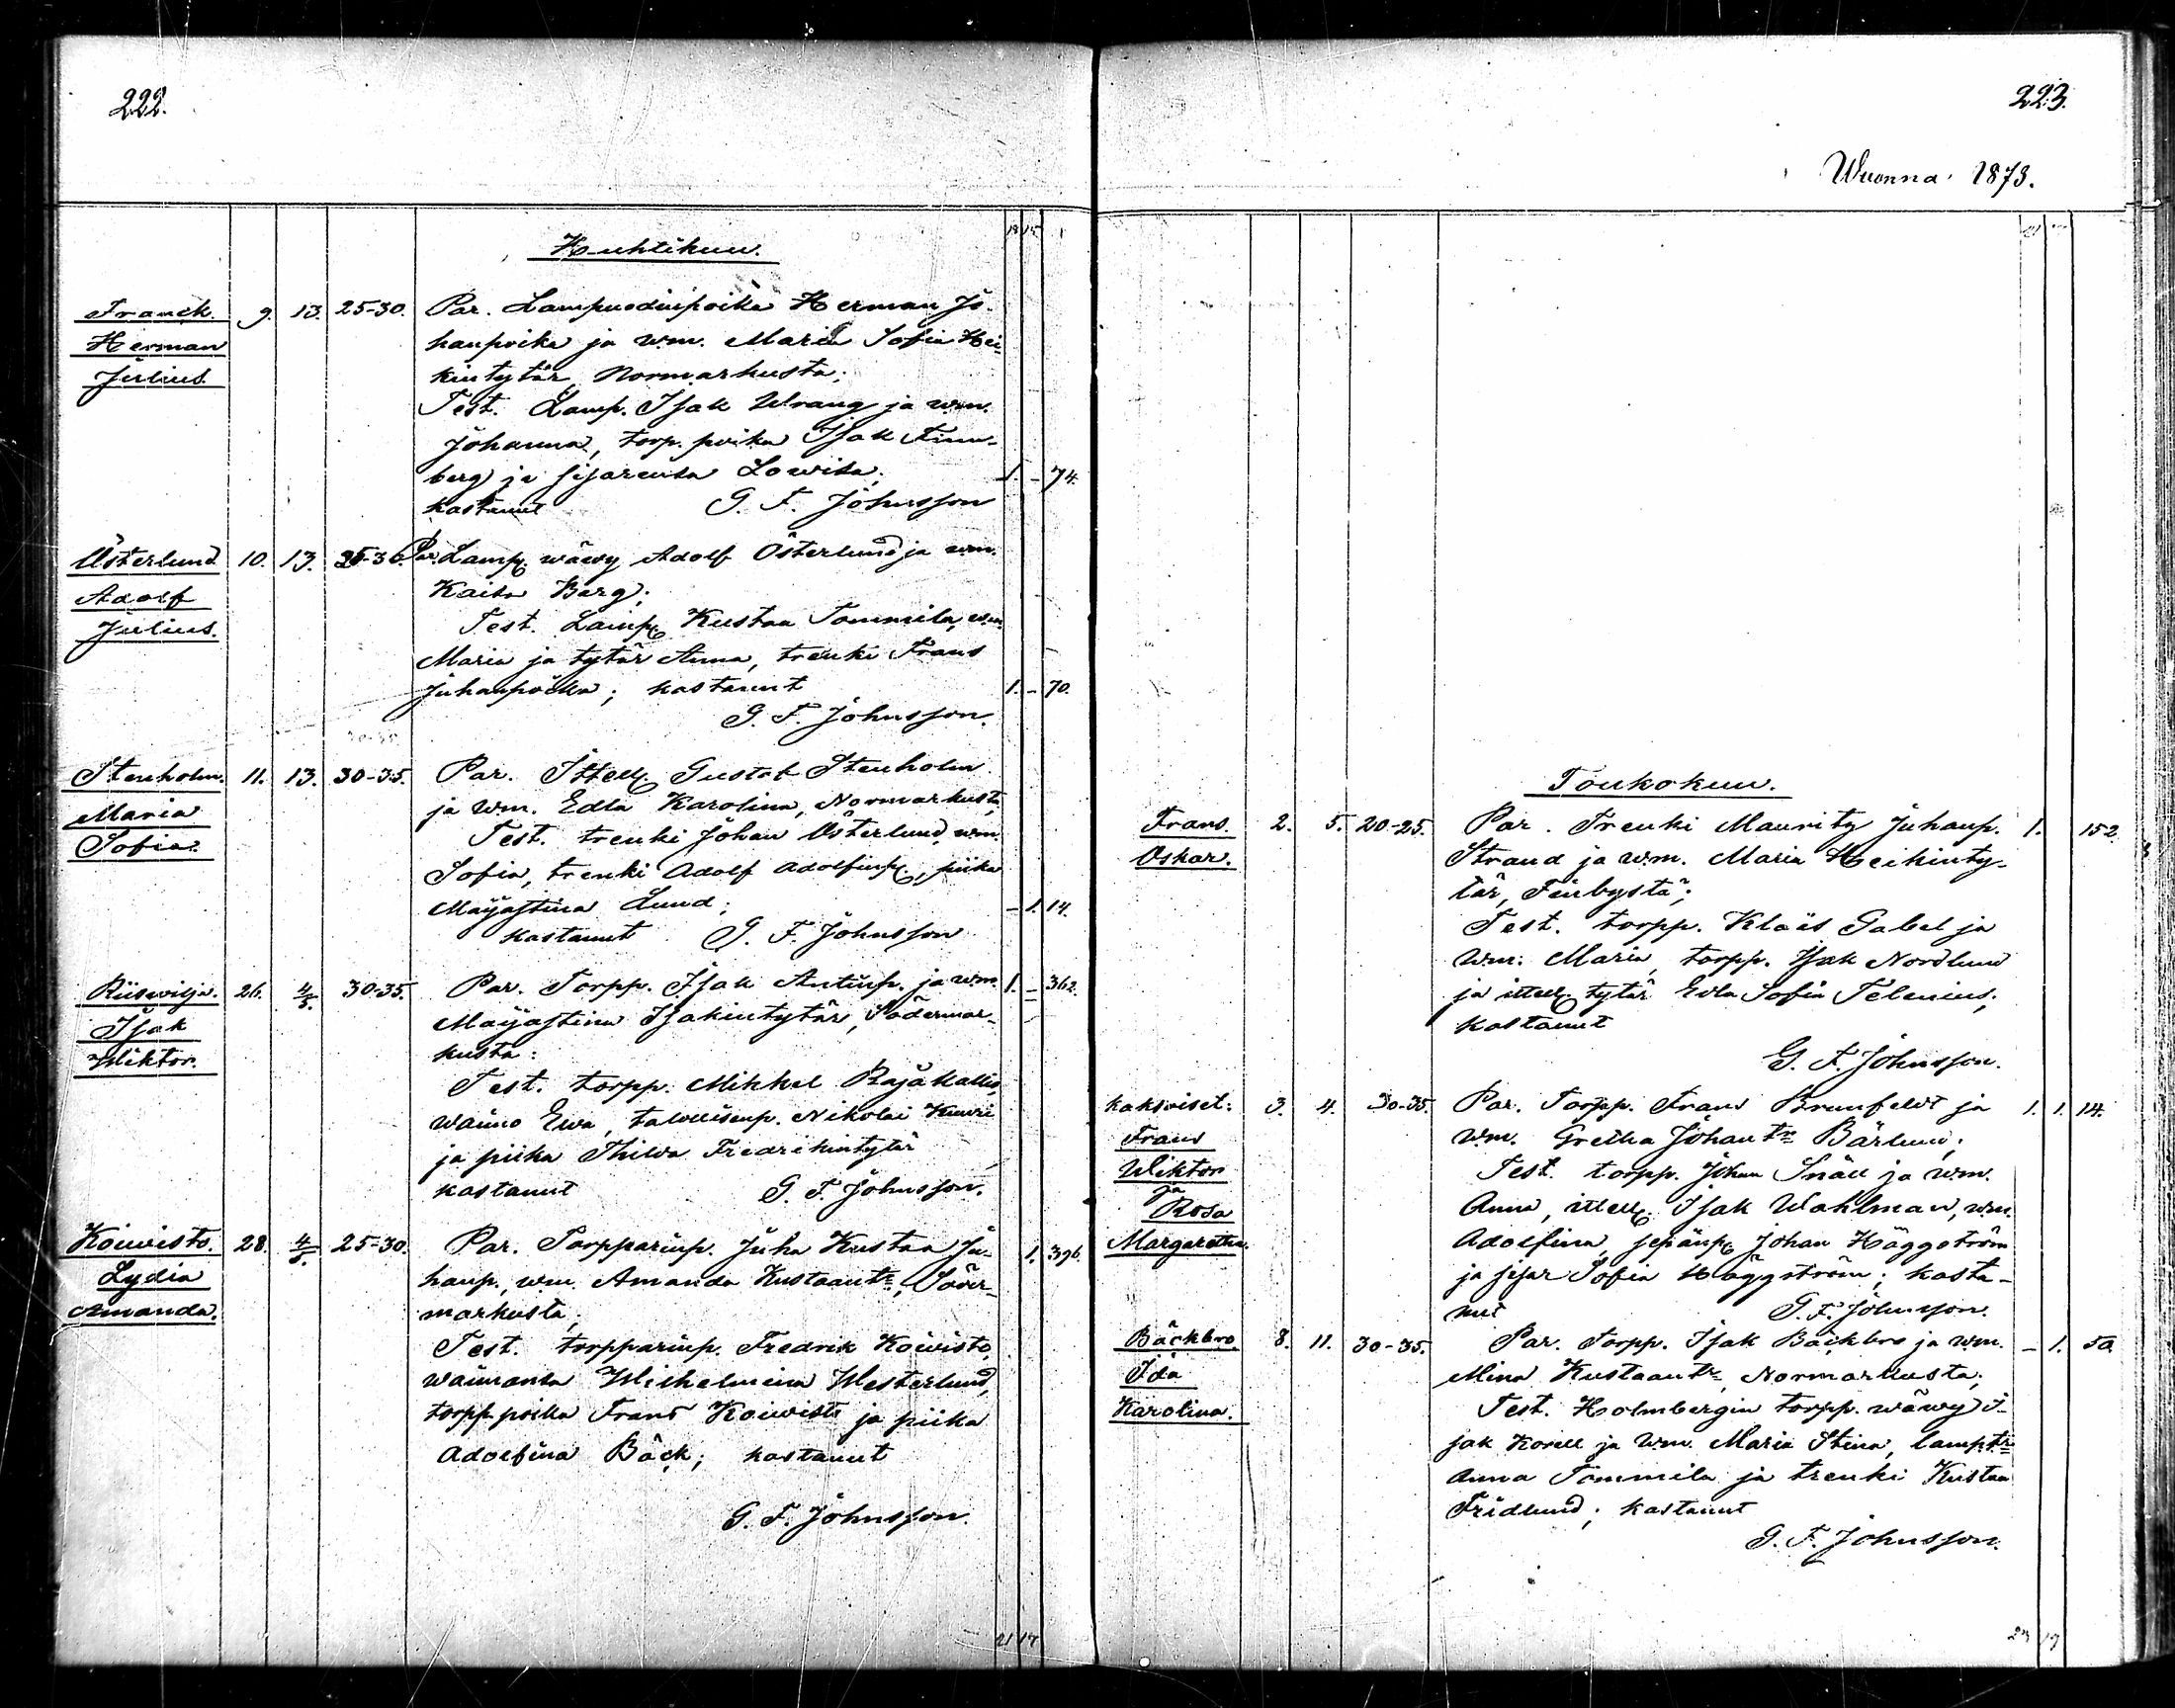 222.
Huhtikuu.
13 15
Franck. 9. 13. 25-30. Par. Lampuodinpoika Herman Jo-
Herman hanpoika ja wm. Maria Sofia Hei-
Julius. kintytär, Normarkusta;
Test. Lamp. Isak Wrang ja wm.
Johanna, torp. poika Isak Finn-
berg ja sisarensa Lowisa; 1. - 74.
kastanut G. F. Johnsson
Österlund 10. 13. 25-30. Par. Lamp. wäwy Adolf Österlund ja wm.
Adolf Kaisa Berg;
Julius. Test. Lamp. Kustaa Tommila, wm.
Maria ja tytär Anna, trenki Frans
Juhanpoika; kastanut 1. - 70.
G. F. Johnsson.
Stenholm. 11. 13. 30-35. Par. Ittell. Gustaf Stenholm
Maria ja wm. Edla Karolina, Normarkusta,
Sofia. Test. trenki Johan Österlund, wm.
Sofia, trenki Adolf Adolfinp., piika
Majastina Lund; - 1. 14.
kastanut G. F. Johnsson
Riisewilja. 26. 4/5. 30-35. Par. Torpp. Isak Antinp. ja wm. 1. - 362.
Isak Majastina Isakintytär, Södermar-
Wiktor. kusta:
Test. torpp. Mikkel Rajakallio,
waimo Ewa, talollisenp. Nikolai
ja piika Thilda Fredrikintytär
kastanut G. F. Johnsson.
Koiwisto. 28. 4/5. 25-30. Par. Torpparinp. Juha Kustaa Ju- 1. 396
Lydia hanp., wm. Amanda Kustaantr., Söder-
Amanda. markusta;
Test. torpparinp. Fredrik Koiwisto,
waimonsa Wilhelmina Westerlund,
torpp. poika Frans Koiwisto ja piika
Adolfina Bäck; kastanut
G. F. Johnsson.
21 17
223.
Wuonna 1873.
Toukokuu.
Frans. 2. 5. 20-25. Par. Trenki Mauritz Juhanp. 1. 152
Oskar. Strand ja wm. Maria Heikinty-
tär, Finbystä;
Test. torpp. Klaës Gabel ja
wm. Maria, torpp. Isak Nordlund
ja ittell. tytär Edla Sofia Telenius;
kastanut
G. F. Johnsson.
kaksoiset: 3. 4. 30-35. Par. Torpp. Frans Brunfeldt ja 1. 1. 14.
Frans wm. Gretha Johantr. Bärlund;
Wiktor Test. torpp. Johan Snäll ja wm.
ja
Rosa Anna, ittell. Isak Wahlman, wm.
Margaretha. Adolfina, sepänp. Johan Häggström
ja sisar Sofia Häggström; kasta-
nut G. F. Johnsson.
Bäckbro. 8. 11. 30-35. Par. Torpp. Isak Bäckbro ja wm. - 1. 50.
Ida Mina Kustaantr., Normarkusta;
Karolina. Test. Holmbergin torpp. wäwy I-
sak Korell ja wm. Maria Stina, lamp. tr.
Anna Tommila ja trenki Kustaa
Fridlund; kastanut
G. F. Johnsson.
23 17